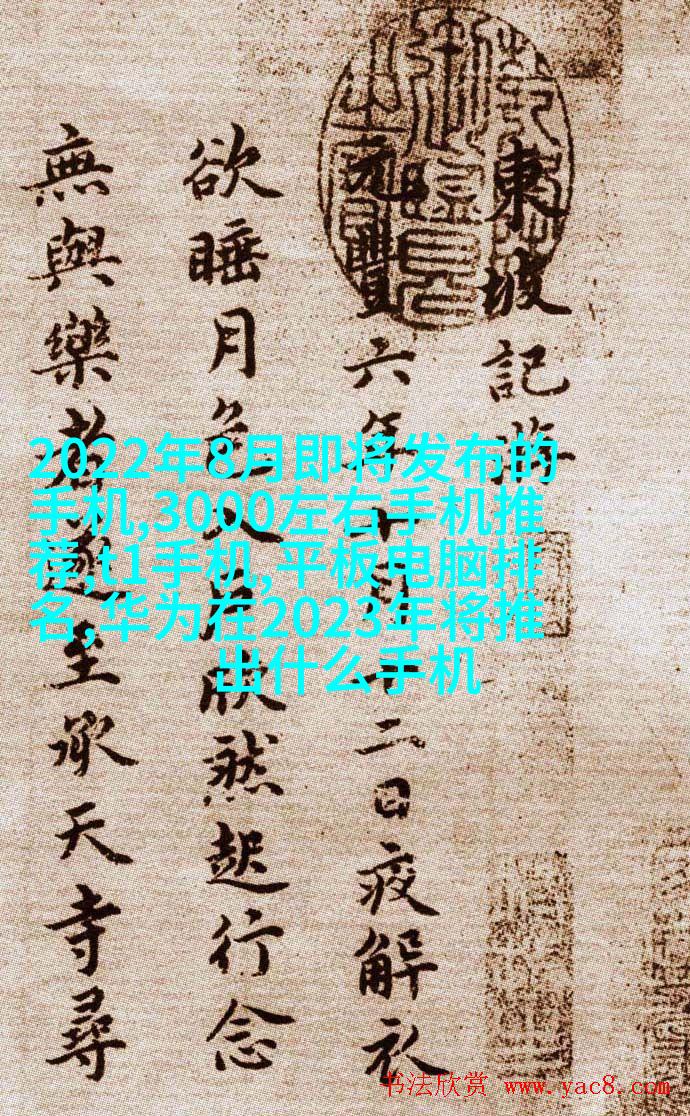 東坡記
元豐六年十月十二日夜解衣
欲睡月色入戶欣然起行念
無與樂者遂至承天寺尋
2022年8月即将发布的
手机,3000左右手机推
荐,t1手机,平板电脑排
名,华为在2023年将推
出什么手机
书法欣赏 www.yac8.com